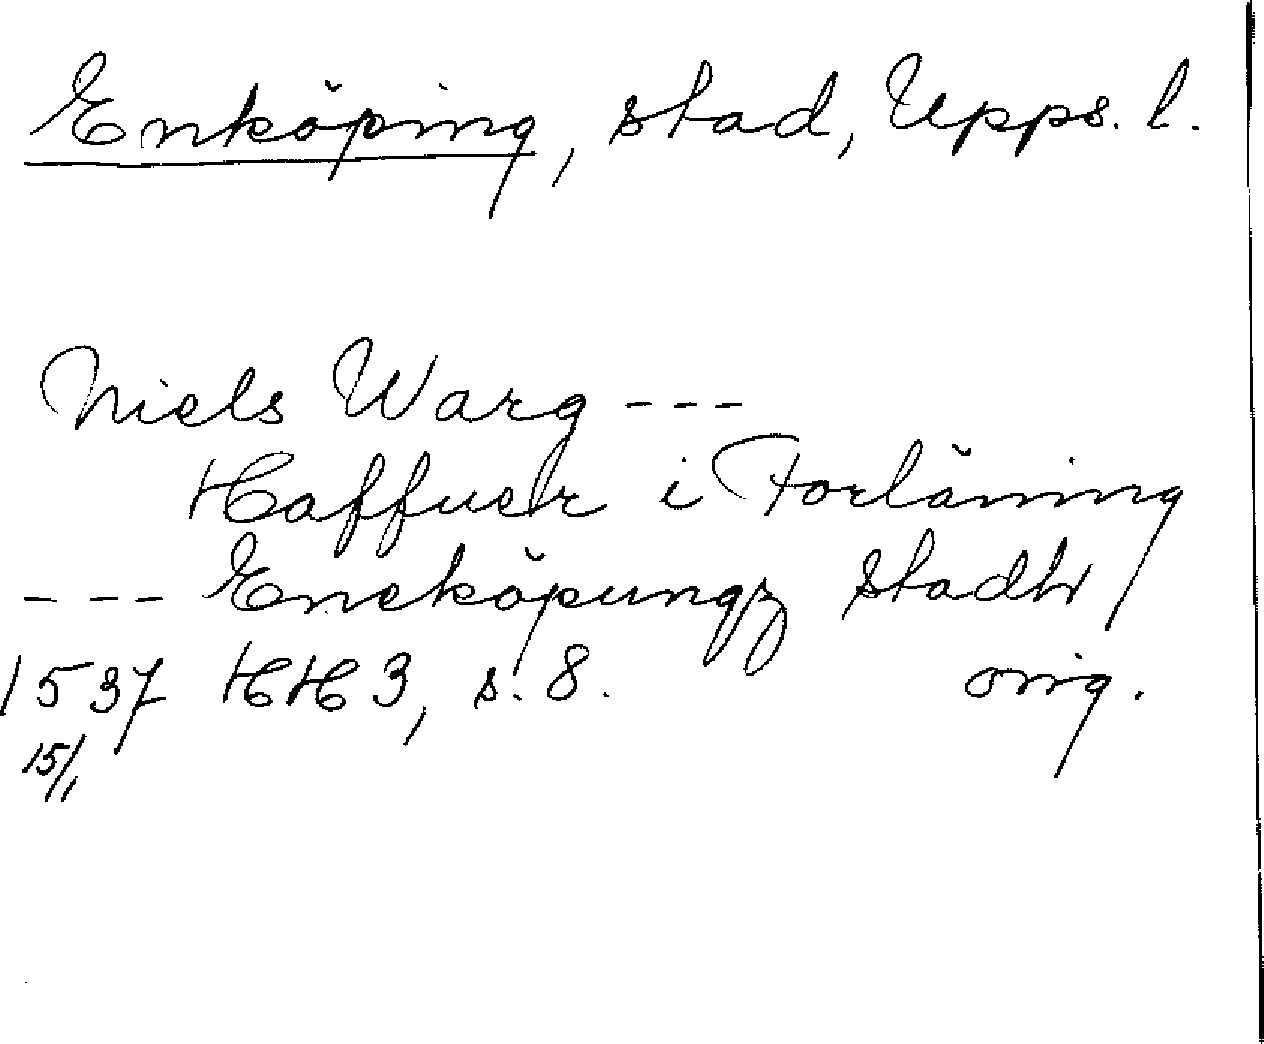 Enköping, stad, Upps. l.
Niels Warg ---
Haffuer i Forläning
--- Eneköpungz stadh
1537 HH 3, s. 8. orig.
15/1